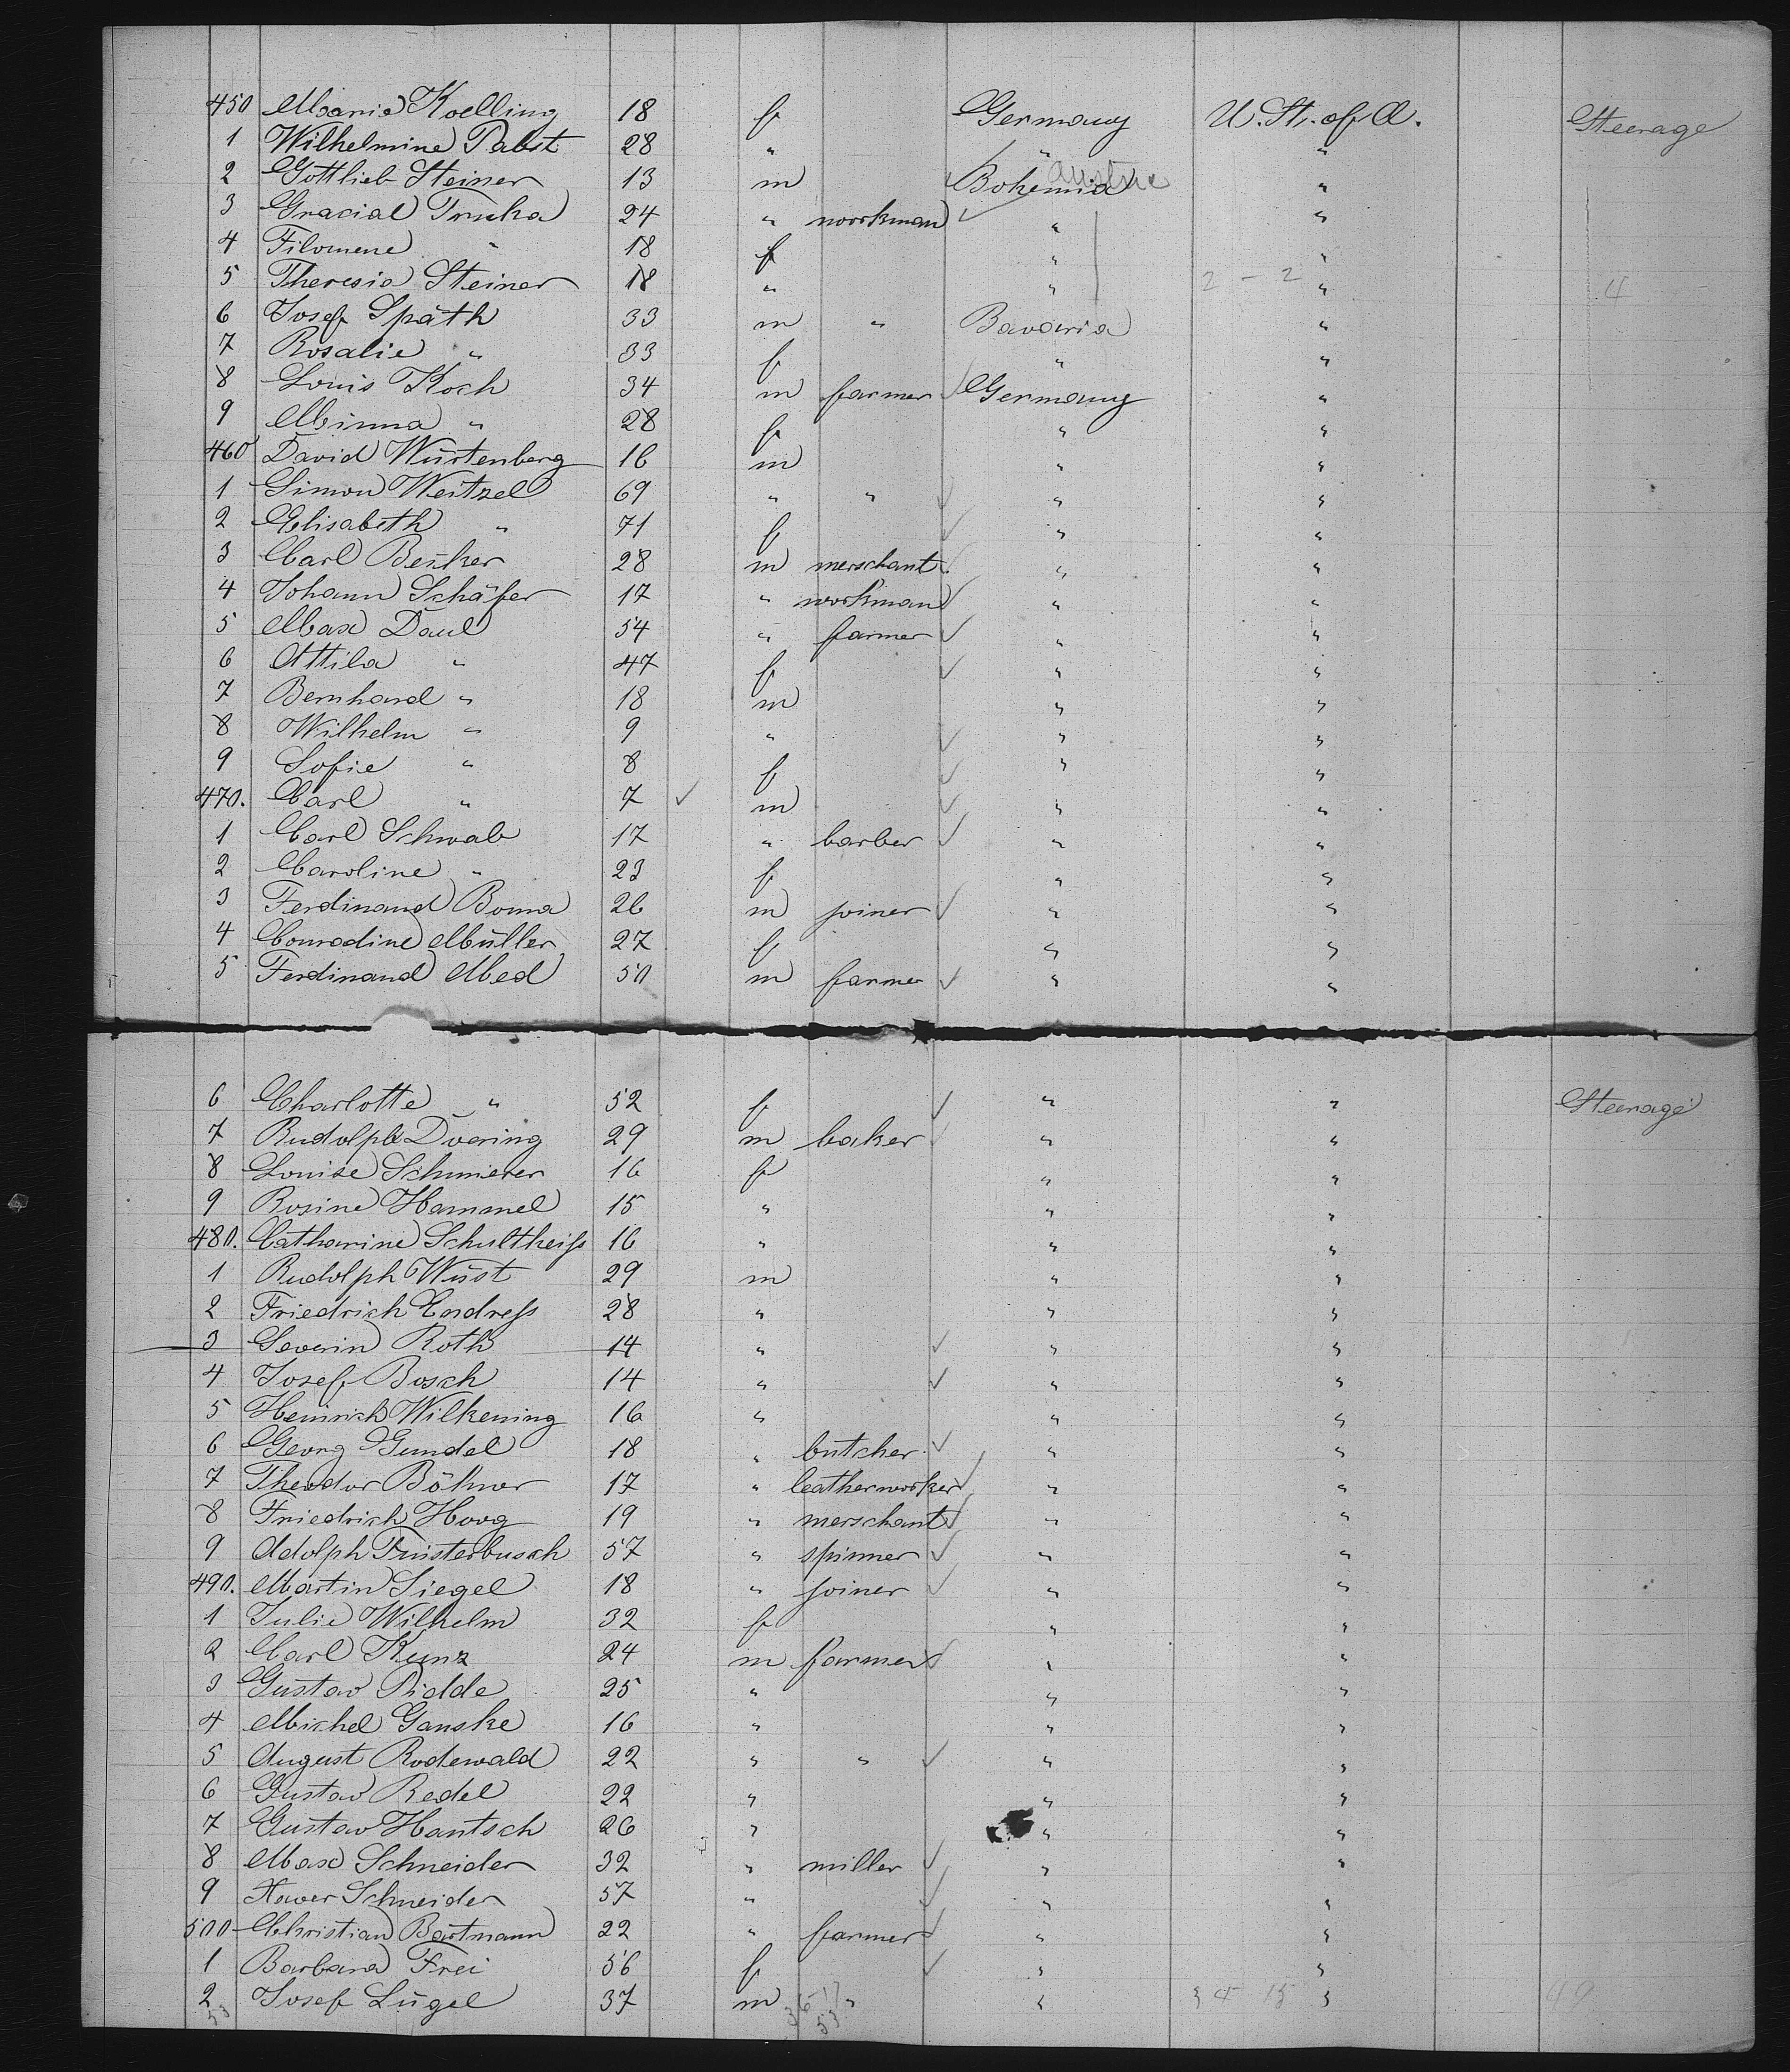 450 Maria Koelling 18 f Germany U. St. of A. Steerage
1 Wilhelmine Pabst 28 " " "
2 Gottlieb Steiner 13 m Bohemia Austria "
3 Gracial Truka 24 " workman " "
4 Filomene " 18 f " "
5 Theresia Steiner 18 " " 2 - 2 " 4
6 Josef Späth 33 m " Bavaria "
7 Rosalie " 33 f " "
8 Louis Koch 34 m farmer Germany "
9 Minna " 28 f " "
460 David Würtenberg 16 m " "
1 Simon Weitzel 69 " " " "
2 Elisabeth " 71 f " "
3 Carl Becker 28 m merschant " "
4 Johann Schäfer 17 " workman " "
5 Max Daul 54 " farmer " "
6 Attila " 47 f " "
7 Bernhard " 18 m " "
8 Wilhelm " 9 " " "
9 Sofie " 8 f " "
470. Carl " 7 m " "
1 Carl Schwab 17 " barber " "
2 Caroline " 23 f " "
3 Ferdinand Boma 26 m joiner " "
4 Conradine Müller 27 f " "
5 Ferdinand Med 50 m farmer " "
6 Charlotte " 52 f " " Steerage
7 Rudolph Doering 29 m baker " "
8 Louise Schmierer 16 f " "
9 Rosine Hammel 15 " " "
480. Catharine Schultheiss 16 " " "
1 Rudolph Wüst 29 m " "
2 Friedrich Endress 28 " " "
3 Severin Roth 14 " " "
4 Josef Bosch 14 " " "
5 Heinrich Wilkening 16 " " "
6 Georg Gundel 18 " butcher " "
7 Theodor Böhner 17 " leatherworker " "
8 Friedrich Hoog 19 " merschant " "
9 Adolph Finsterbusch 57 " spinner " "
490. Martin Siegel 18 " joiner " "
1 Julie Wilhelm 32 f " "
2 Carl Kunz 24 m farmer " "
3 Gustav Ridde 25 " " "
4 Michel Ganske 16 " " "
5 August Rodewald 22 " " " "
6 Gustav Redel 22 " " "
7 Gustav Hantsch 26 " " "
8 Max Schneider 32 " miller " "
9 Xaver Schneider 57 " " "
500 Christian Bartmann 22 " farmer " "
1 Barbara Frei 56 f " "
2 Josef Lügel 37 m " " " 49
53